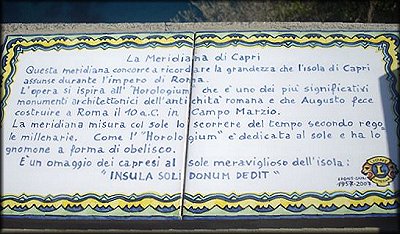 La Meridiana di Capri
Questa meridiana concorre a ricordare la grandezza che l'isola di Capri
assunse durante l'impero di Roma.
L'opera si ispira all'"Horologium" che è uno dei più significativi
monumenti architettonici dell'antichità romana e che Augusto fece
costruire a Roma il 10 a.C. in Campo Marzio.
La meridiana misura col sole lo scorrere del tempo secondo rego
le millenarie. Come l'"Horologium" è dedicata al sole e ha lo
gnomone a forma di obelisco.
È un omaggio dei capresi al sole meraviglioso dell'isola:
"INSULA SOLI DONUM DEDIT"
LIONS
L
1957-2007